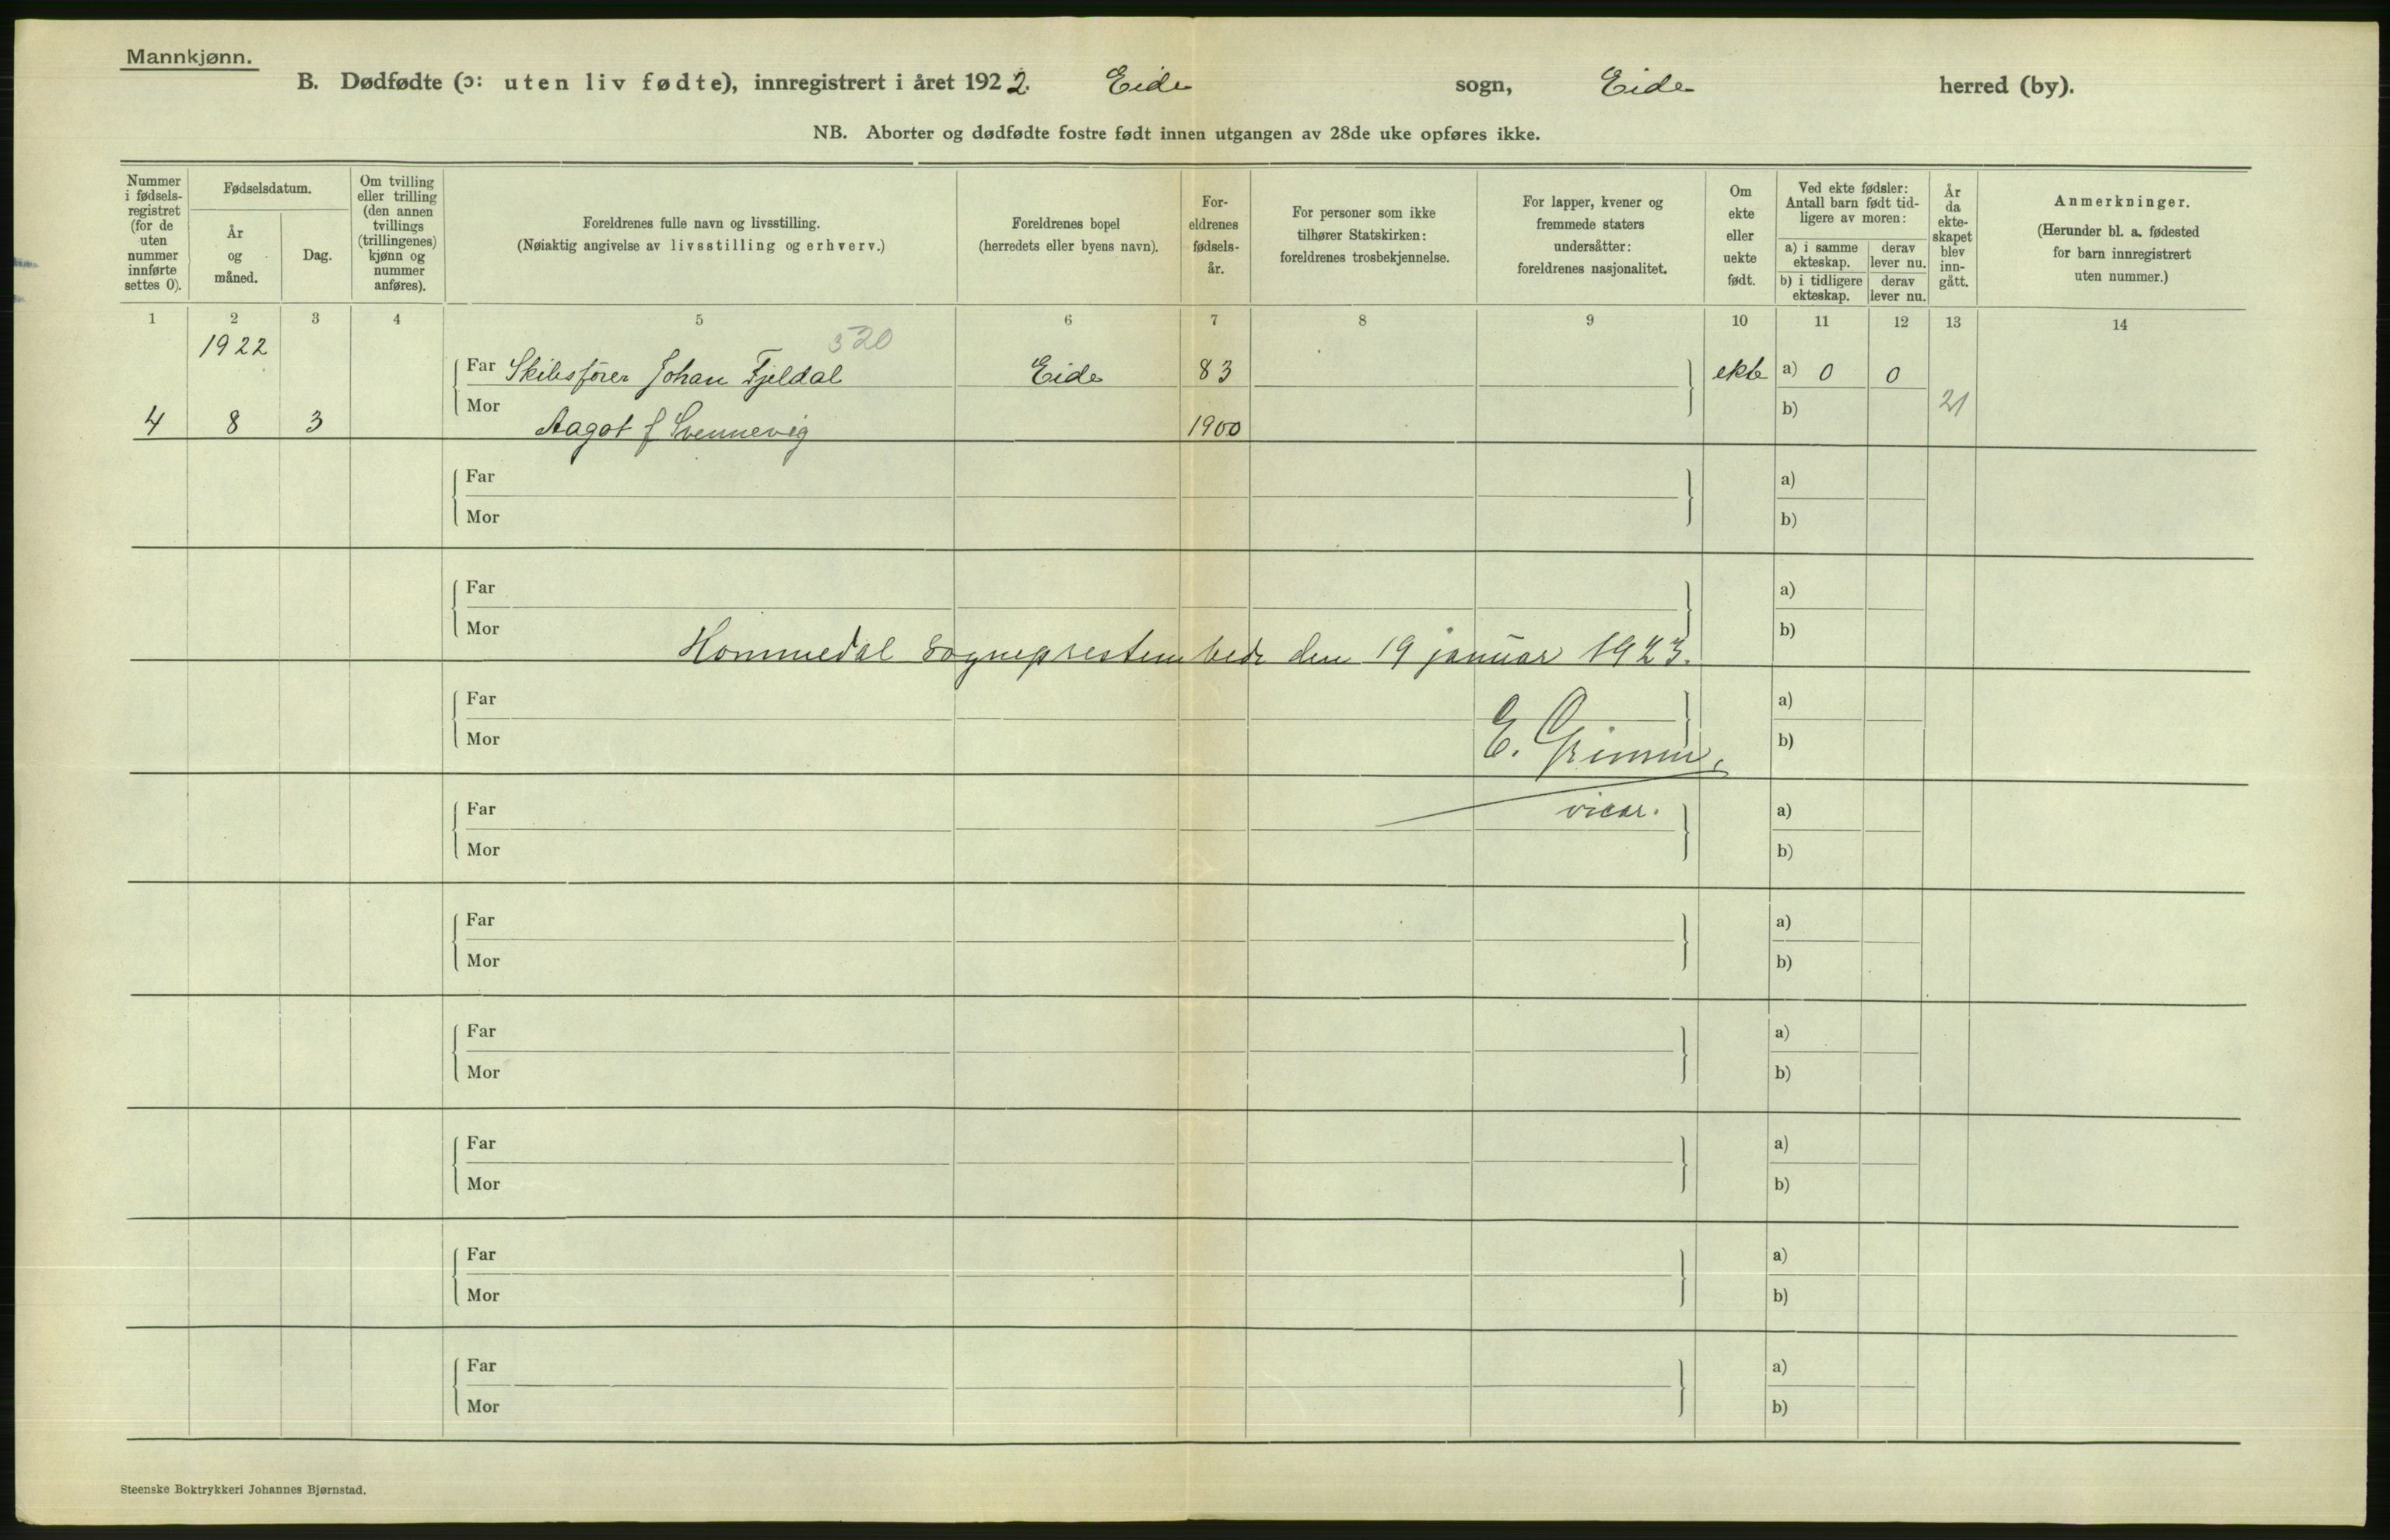 Mannkjønn.
B. Dødfødte (ɔ: uten liv fødte), innregistrert i året 1922. Eide sogn, Eide herred (by).
NB. Aborter og dødfødte fostre født innen utgangen av 28de uke opføres ikke.
Nummer
i fødsels-
registret
(for de
uten
nummer
innførte
settes 0).
Fødselsdatum.
År
og
måned.
Dag.
Om tvilling
eller trilling
(den annen
tvillings
(trillingenes)
kjønn og
nummer
anføres).
Foreldrenes fulle navn og livsstilling.
(Nøiaktig angivelse av livsstilling og erhverv.)
Foreldrenes bopel
(herredets eller byens navn).
For-
eldrenes
fødsels-
år.
For personer som ikke
tilhører Statskirken:
foreldrenes trosbekjennelse.
For lapper, kvener og
fremmede staters
undersåtter:
foreldrenes nasjonalitet.
Om
ekte
eller
uekte
født.
Ved ekte fødsler:
Antall barn født tid-
ligere av moren:
a) i samme
ekteskap.
derav
lever nu.
b) i tidligere
ekteskap.
derav
lever nu.
År
da
ekte-
skapet
blev
inn-
gått.
Anmerkninger.
(Herunder bl. a. fødested
for barn innregistrert
uten nummer.)
1 2 3 4 5 6 7 8 9 10 11 12 13 14
1922 520
Far Skibsfører Johan Fjeldal Eide 83 ekte a) 0 0
Mor b) 21
4 8 3 Aagot f Svennevig 1900
Far a)
Mor b)
Far a)
Mor b)
Hommedal sogneprestembede den 19 januar 1923.
Far a)
Mor b)
E. Grimm,
Far vicar. a)
Mor b)
Far a)
Mor b)
Far a)
Mor b)
Far a)
Mor b)
Far a)
Mor b)
Far a)
Mor b)
Steenske Boktrykkeri Johannes Bjørnstad.